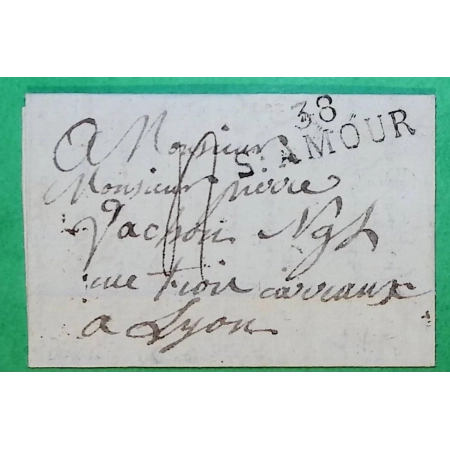 38
S. AMOUR
A Monsieur
Monsieur pierre
Vachon Ngt
rue trois carreaux
a Lyon